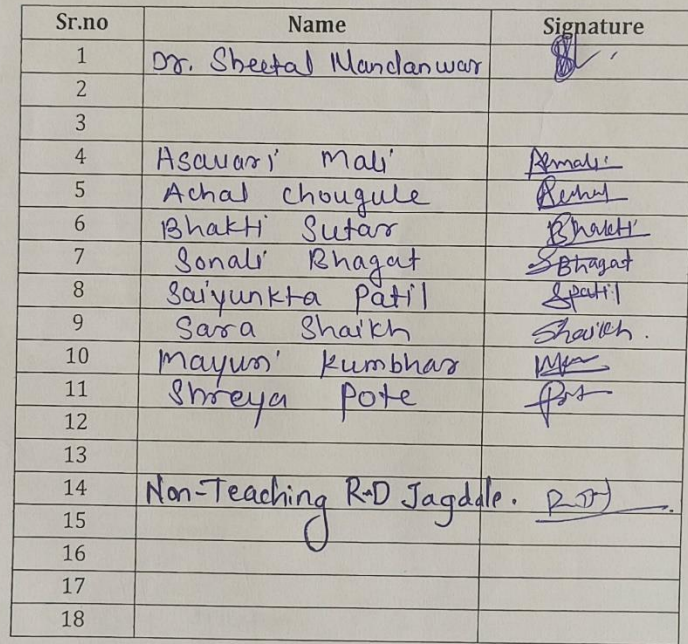 Sr.no Name Signature
1 Dr. Sheetal Mandanwar
2
3
4 Asavari Mali Asmali
5 Achal Chougule Achal
6 Bhakti Sutar Bhakti
7 Sonali Bhagat SBhagat
8 Saiyunkta Patil Spatil
9 Sara Shaikh Shaikh.
10 Mayuri Kumbhar
11 Shreya Pote
12
13
14 Non-Teaching R.D Jagdale. RDJ
15
16
17
18